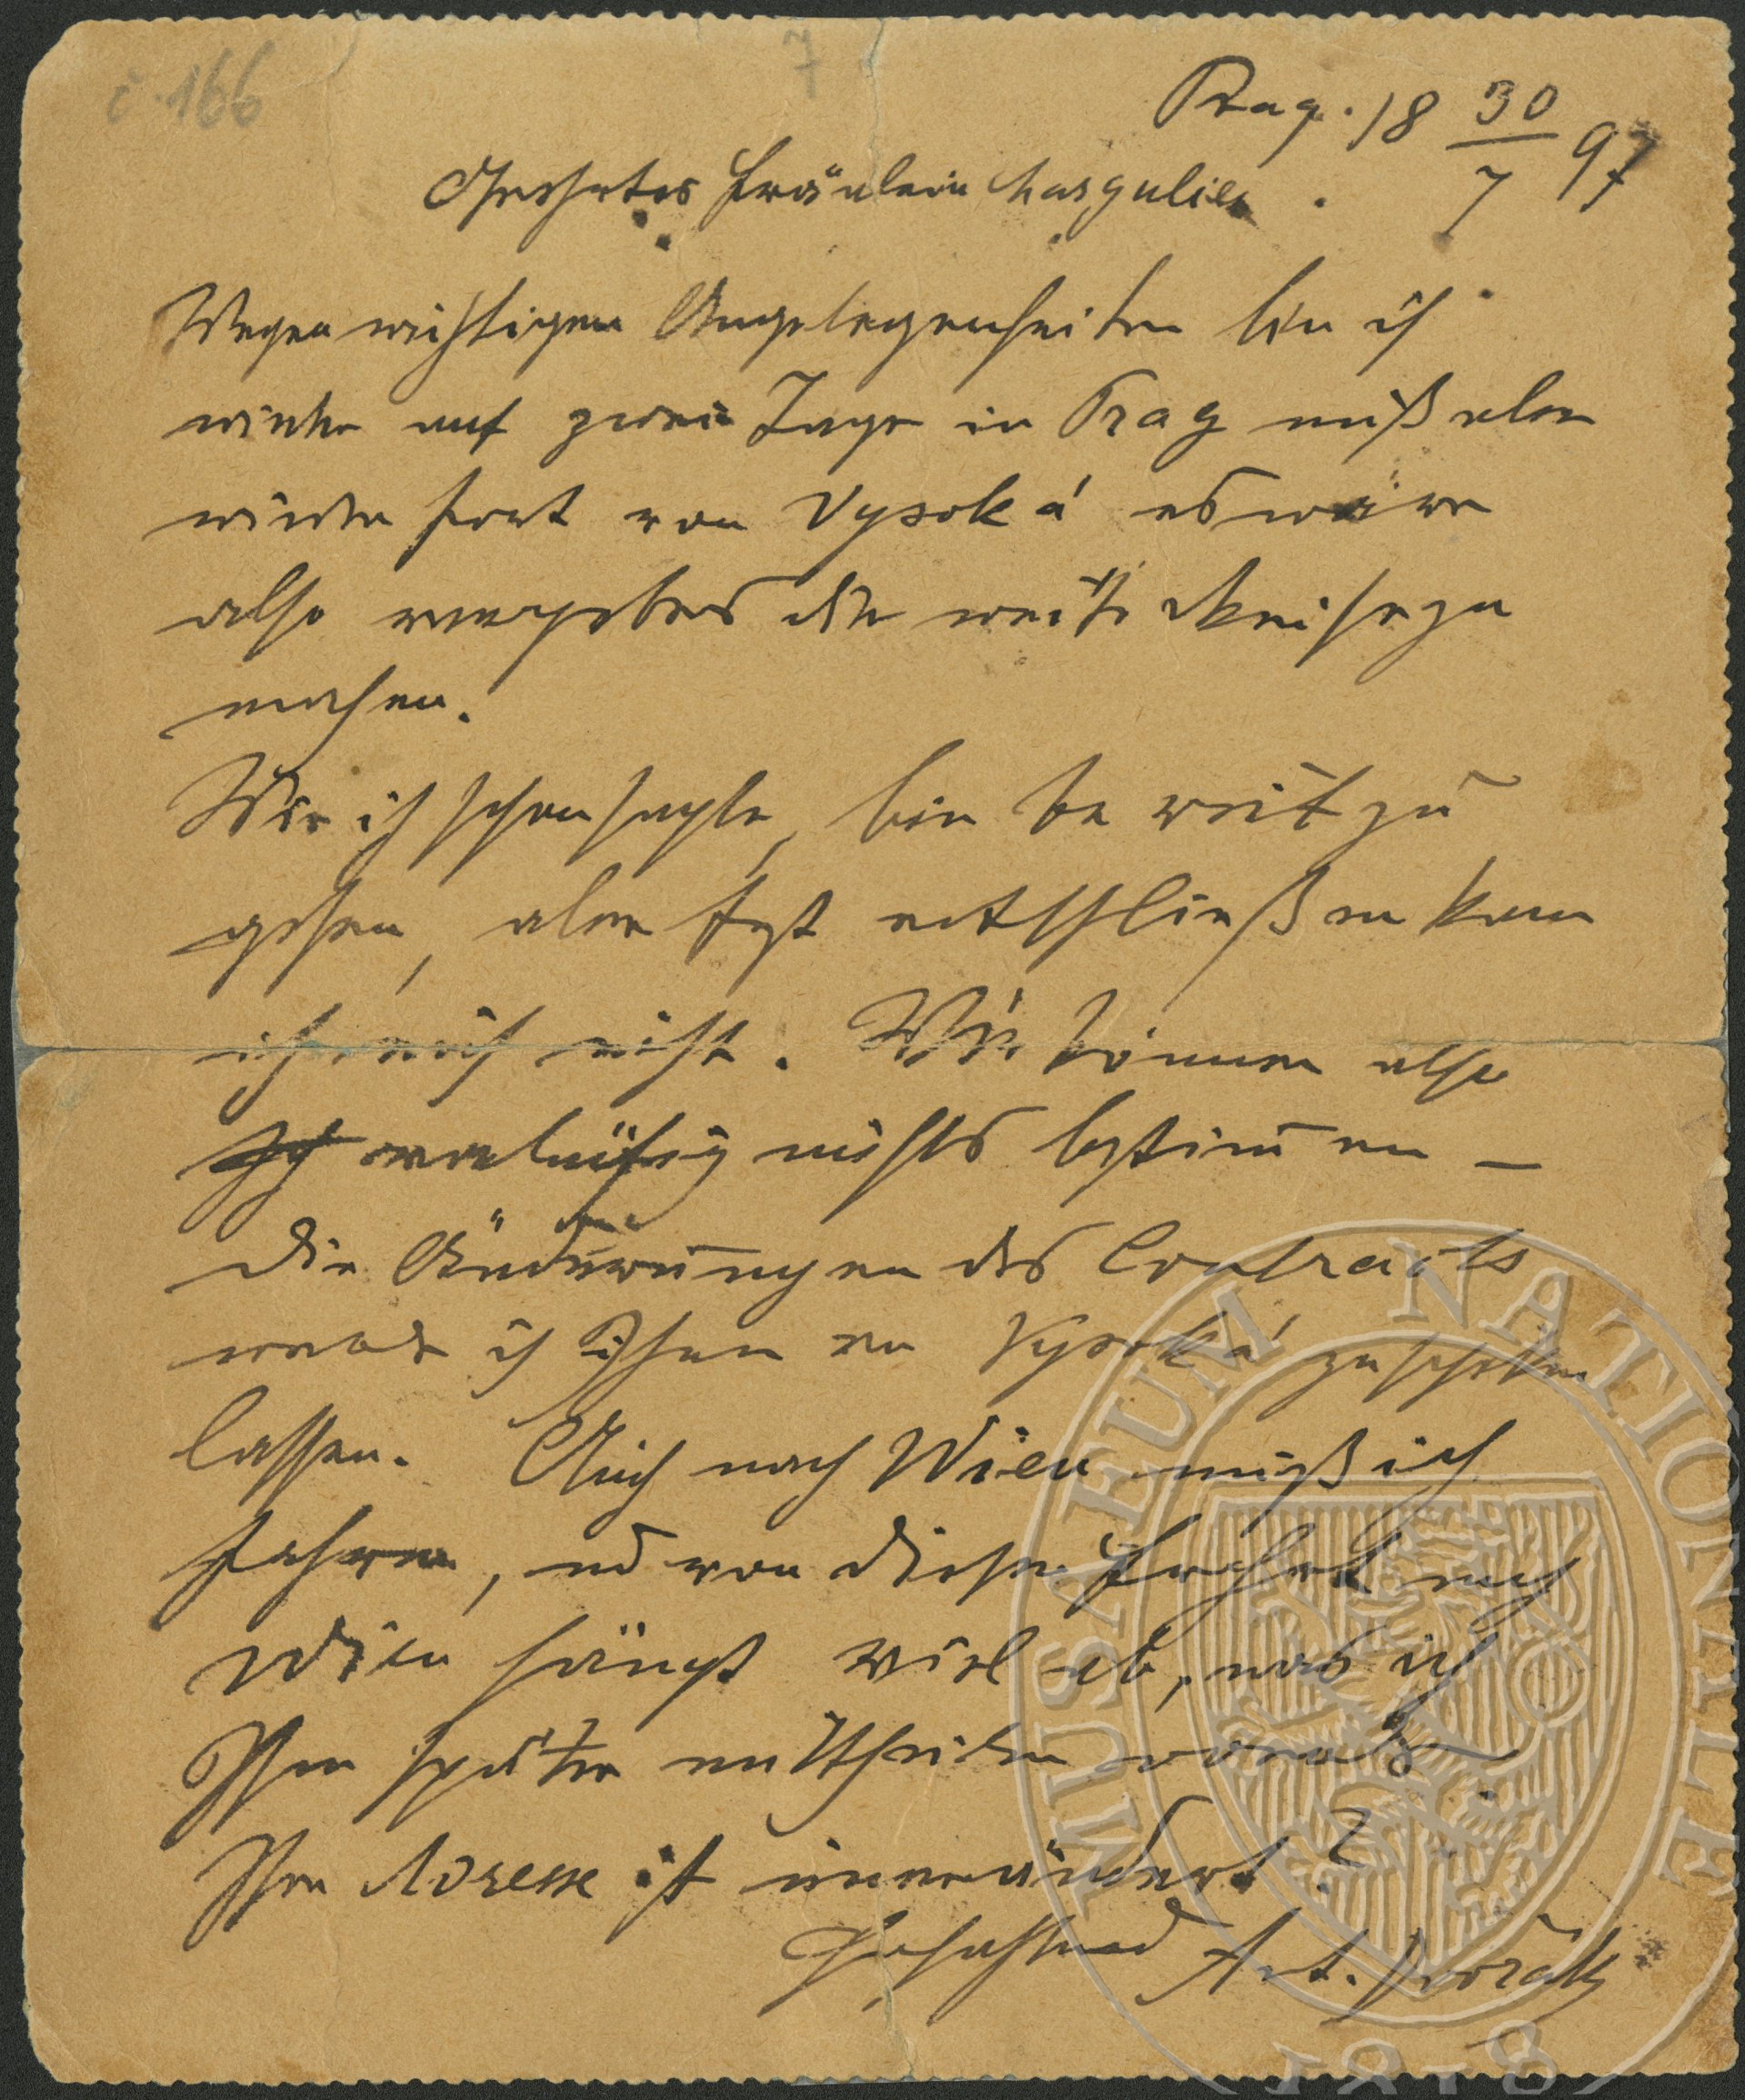 č. 166
7
Prag. 18 30/7 97
Geehrtes Fräulein Margulies.
Wegen wichtigen Angelegenheiten bin ich
wieder auf zwei Tage in Prag muß aber
wieder fort von Vysoká es wäre
also vergebens die weite Reise zu
machen.
Wie ich schon sagte, bin bereit zu
gehen, aber fest entschließen kann
ich mich nicht. Wir können also
vorläufig nichts bestimmen —
die Änderungen des Contracts
werde ich Ihnen Vysoká zuschicken
lassen. Auch nach Wien muß ich
fahren, und von dieser Fahrt nach
Wien hängt viel ab, was ich
Ihnen später mittheilen werde
Ihre Adresse ist unverändert?
Hochachtend Ant. Dvořák
MUSAEUM NATIONALE
1818